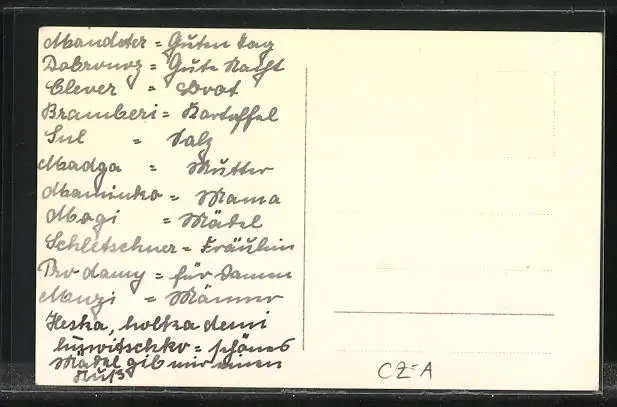 Mandeter = Guten Tag
Dobrounz = Gute Nacht
Clever = Brot
Bramberi = Kartoffel
Sul = Salz
Madga = Mutter
Maminko = Mama
Mogi = Mädel
Schletschner = Fräulein
Pro damy = für Damen
Muzi = Männer
Heska, holka demi
huwitschko = schönes
Mädel gib mir einen
Kuß
CZ-A